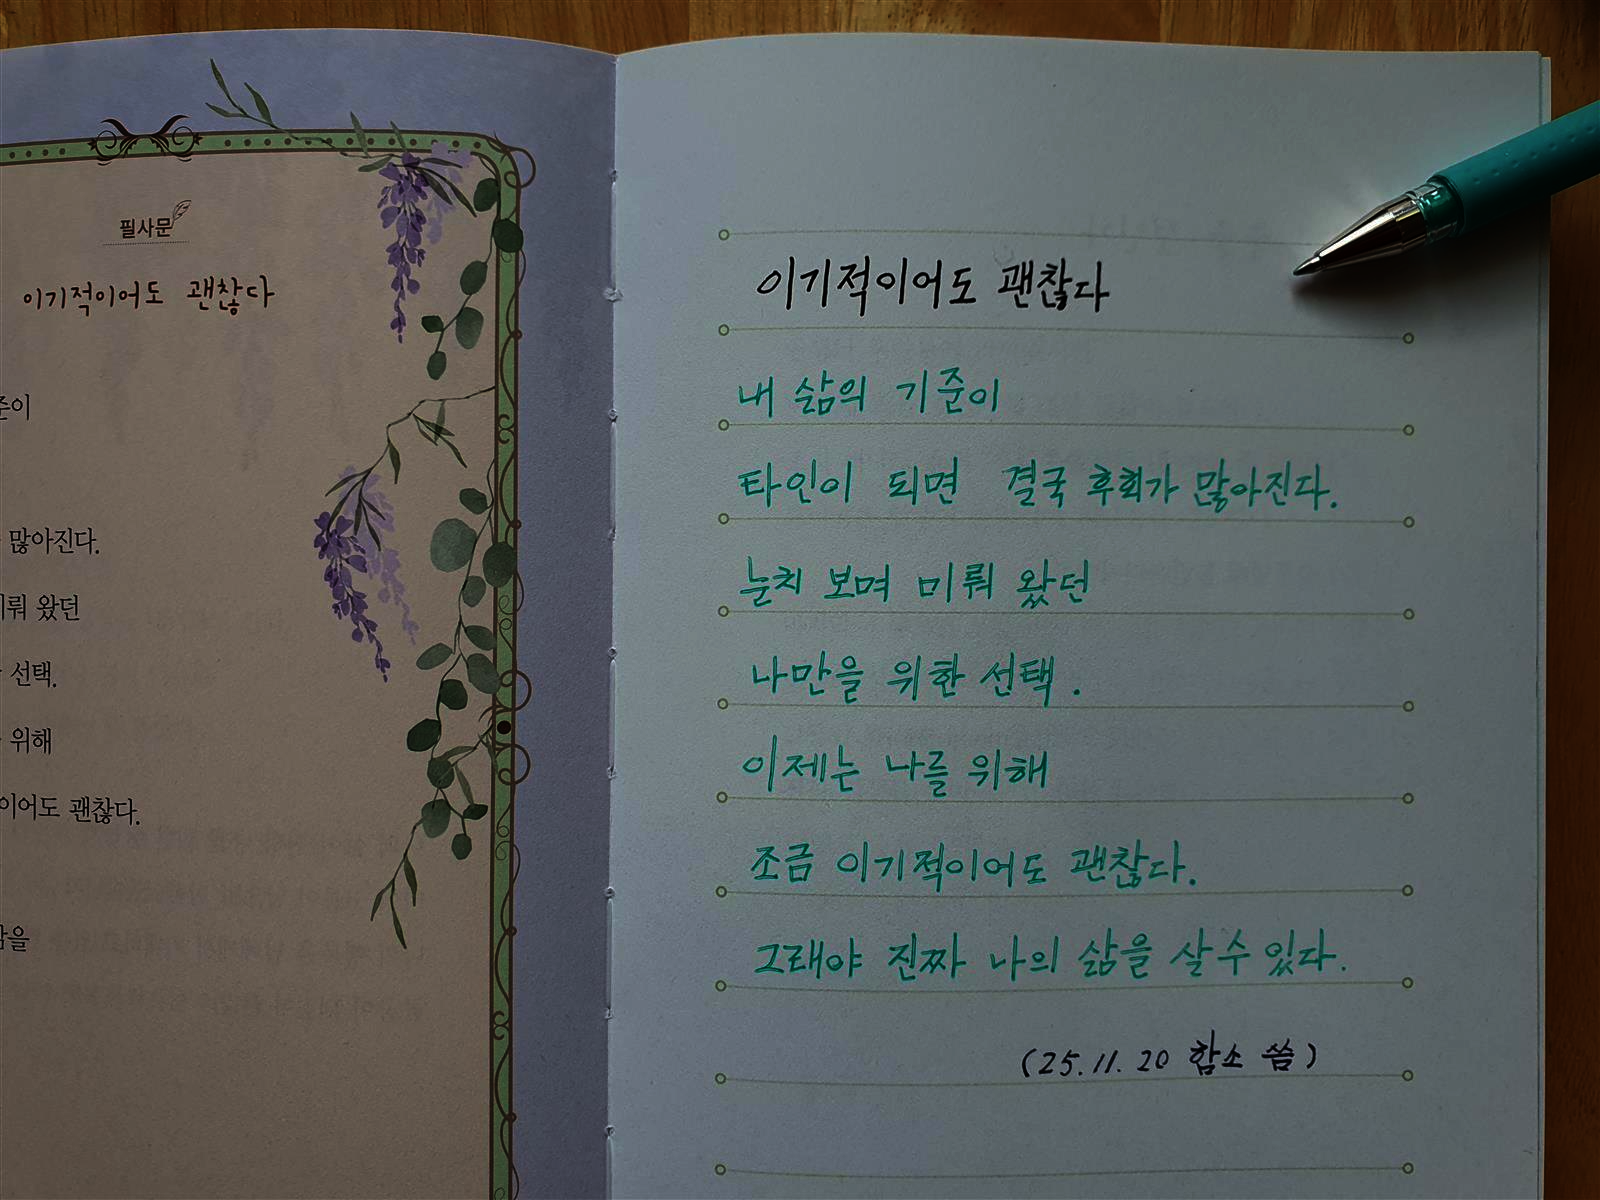 필사문
이기적이어도 괜찮다
준이
많아진다.
미뤄 왔던
선택.
위해
이어도 괜찮다.
이기적이어도 괜찮다
내 삶의 기준이
타인이 되면 결국 후회가 많아진다.
눈치 보며 미뤄 왔던
나만을 위한 선택.
이제는 나를 위해
조금 이기적이어도 괜찮다.
그래야 진짜 나의 삶을 살 수 있다.
(25.11.20 함소 씀)